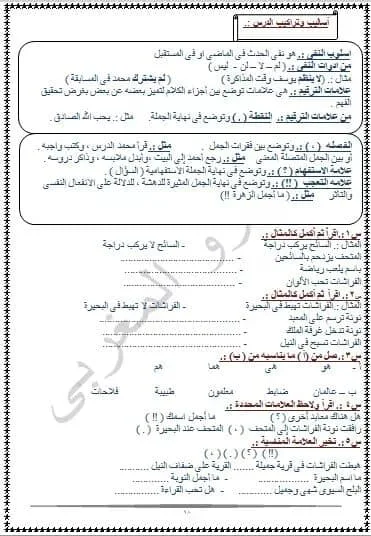 أساليب وتراكيب الدرس :.
أسلوب النفى :. هو نفى الحدث فى الماضى أو فى المستقبل
من أدوات النفى :. ( لم – لا – لن - ليس )
مثال :. (لا ينظم يوسف وقت المذاكرة ) ( لم يشترك محمد فى المسابقة )
علامات الترقيم :. هى علامات توضع بين أجزاء الكلام لتميز بعضه عن بعض بغرض تحقيق
الفهم .
من علامات الترقيم :. النقطة ( . ) وتوضع فى نهاية الجملة. مثل :. يحب الله الصادق .
الفصله ( ، ) :. وتوضع بين فقرات الجمل . مثل :. قرأ محمد الدرس ، وكتب واجبه .
أو بين الجمل المتصلة المعنى مثل :. رجع أحمد إلى البيت ، وأبدل ملابسه ، وذاكر دروسه .
علامة الاستفهام ( ؟ ) :. وتوضع فى نهاية الجملة الاستفهامية ( السؤال ) .
علامه التعجب ( !! ) :. وتوضع فى نهاية الجمل المثيرة للدهشة ، للدلالة على الانفعال النفسى
والتأثر مثل :. ( ما أجمل الزهرة !! )
س١:. اقرأ ثم أكمل كالمثال :.
المثال :. السائح يركب دراجة - السائح لا يركب دراجة
المتحف يزدحم بالسائحين - ........................
باسم يلعب رياضة - ........................
الفراشات تحب الألوان - ........................
س٢:. اقرأ ثم أكمل كالمثال :.
المثال :. الفراشات تهبط فى البحيرة - الفراشات لا تهبط فى البحيرة
نونة ترسم على المعبد - ........................
نونة تدخل غرفة الملك - ........................
الفراشات تسبح فى النيل - ........................
س٣:. صل من ( أ ) ما يناسبه من ( ب ) :.
أ - هو هى هما هم
ب – عالمان ضابط معلمون طبيبة فلاحات
س٤:. اقرأ ولاحظ العلامات المحددة :.
هل هناك معابد أخرى ( ؟ ) ما أجمل اسمك ( !! )
رافقت نونة الفراشات إلى المتحف ( ، ) المتحف عند البحيرة ( . )
س٥:. تخير العلامة المناسبة :.
( !! ) ( ؟ ) ( . ) ( ، )
هبطت الفراشات فى قرية جميلة ....... القرية على ضفاف النيل ..........
ما اسم البحيرة .......... - ما أجمل النوبة ..........
البلح السيوى شهى وجميل .......... - هل تحب القراءة ..........
١٠